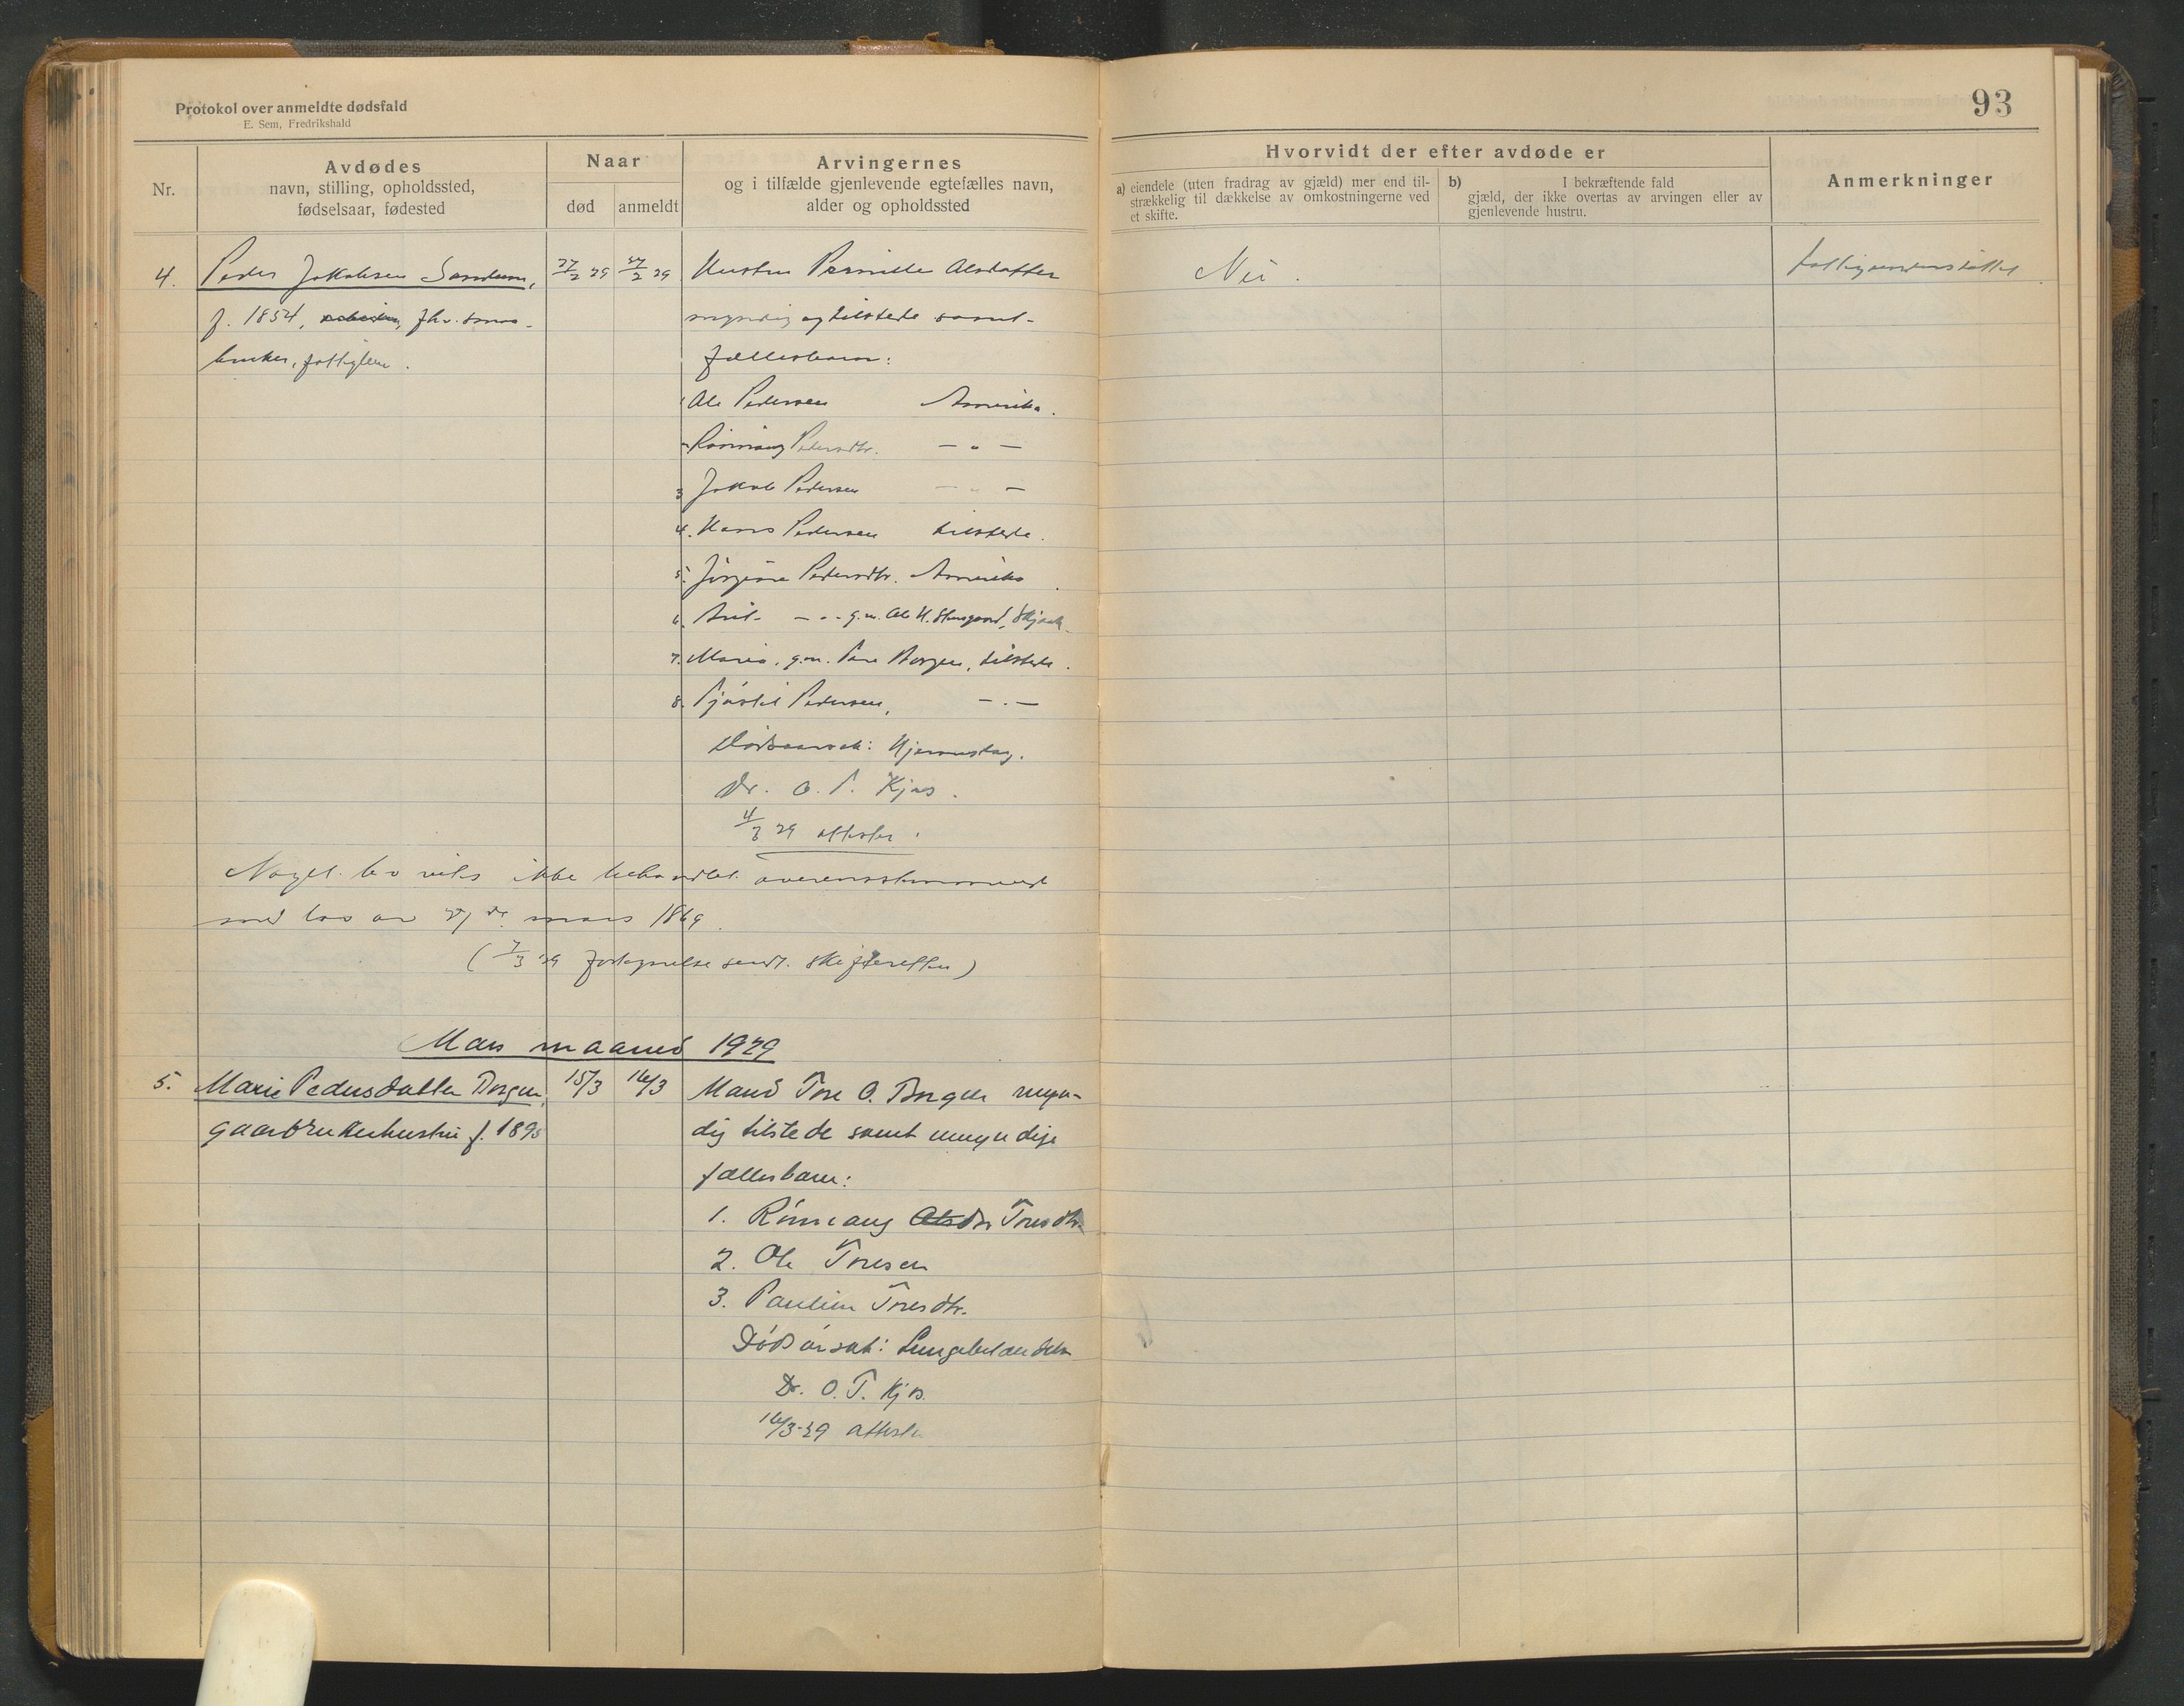 Protokol over anmeldte dødsfald
E. Sem, Fredrikshald
93
Nr.
Avdødes
navn, stilling, opholdssted,
fødselsaar, fødested
Naar
død
anmeldt
Arvingernes
og i tilfælde gjenlevende egtefælles navn,
alder og opholdssted
Hvorvidt der efter avdøde er
a) eiendele (uten fradrag av gjæld) mer end til-
strækkelig til dækkelse av omkostningerne ved
et skifte.
b) I bekræftende fald
gjæld, der ikke overtas av arvingen eller av
gjenlevende hustru.
Anmerkninger
4. Peder Jakobsen 27/2 29 /2 29 Hustru Pernille Olsdatter Nei.
f. 1854, fhv. smaa- myndig og tilstede samt
bruker, fattiglem. fællesbarn:
1 Ole Pedersen Amerika.
Rönnaug Pedersdtr. — " —
3 Jakob Pedersen — " —
4. Hans Pedersen tilstede.
5. Jörgine Pedersdtr. Amerika
6. - " - g.m. Ole H. Skjaak.
7. Maria, g.m. Tore Borgen, tilstede.
8. Pedersen, — " —
Dödsaarsak: Hjerneslag.
Dr. O. T. Kjos.
4/3 29 attester.
Noget bo vites ikke behandlet overensstemmende
med lov av mars 1869.
(7/3 29 skifteretten)
Mars maaned 1929
5. Marie Pedersdatter Borgen, 15/3 16/3 Mand Tore O. Borgen myn-
gaardbrukerhustru f. 1895 dig tilstede samt umyndige
fællesbarn:
1. Rönnaug Olsdtr Toresdtr.
2. Ole Toresen
3. Pauline Toresdtr.
Dödsårsak: Lungebetændelse
Dr. O. T. Kjos.
16/3-29 attester